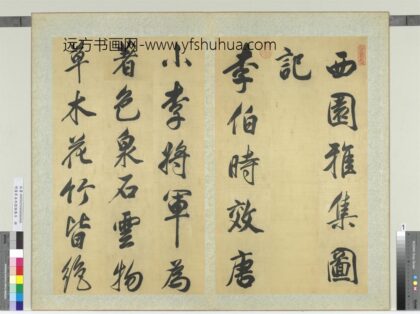 远方书画网-www.yfshuhua.com
西園雅集圖
記
李伯時效唐
小李將軍為
著色泉石雲物
草木花竹皆絶